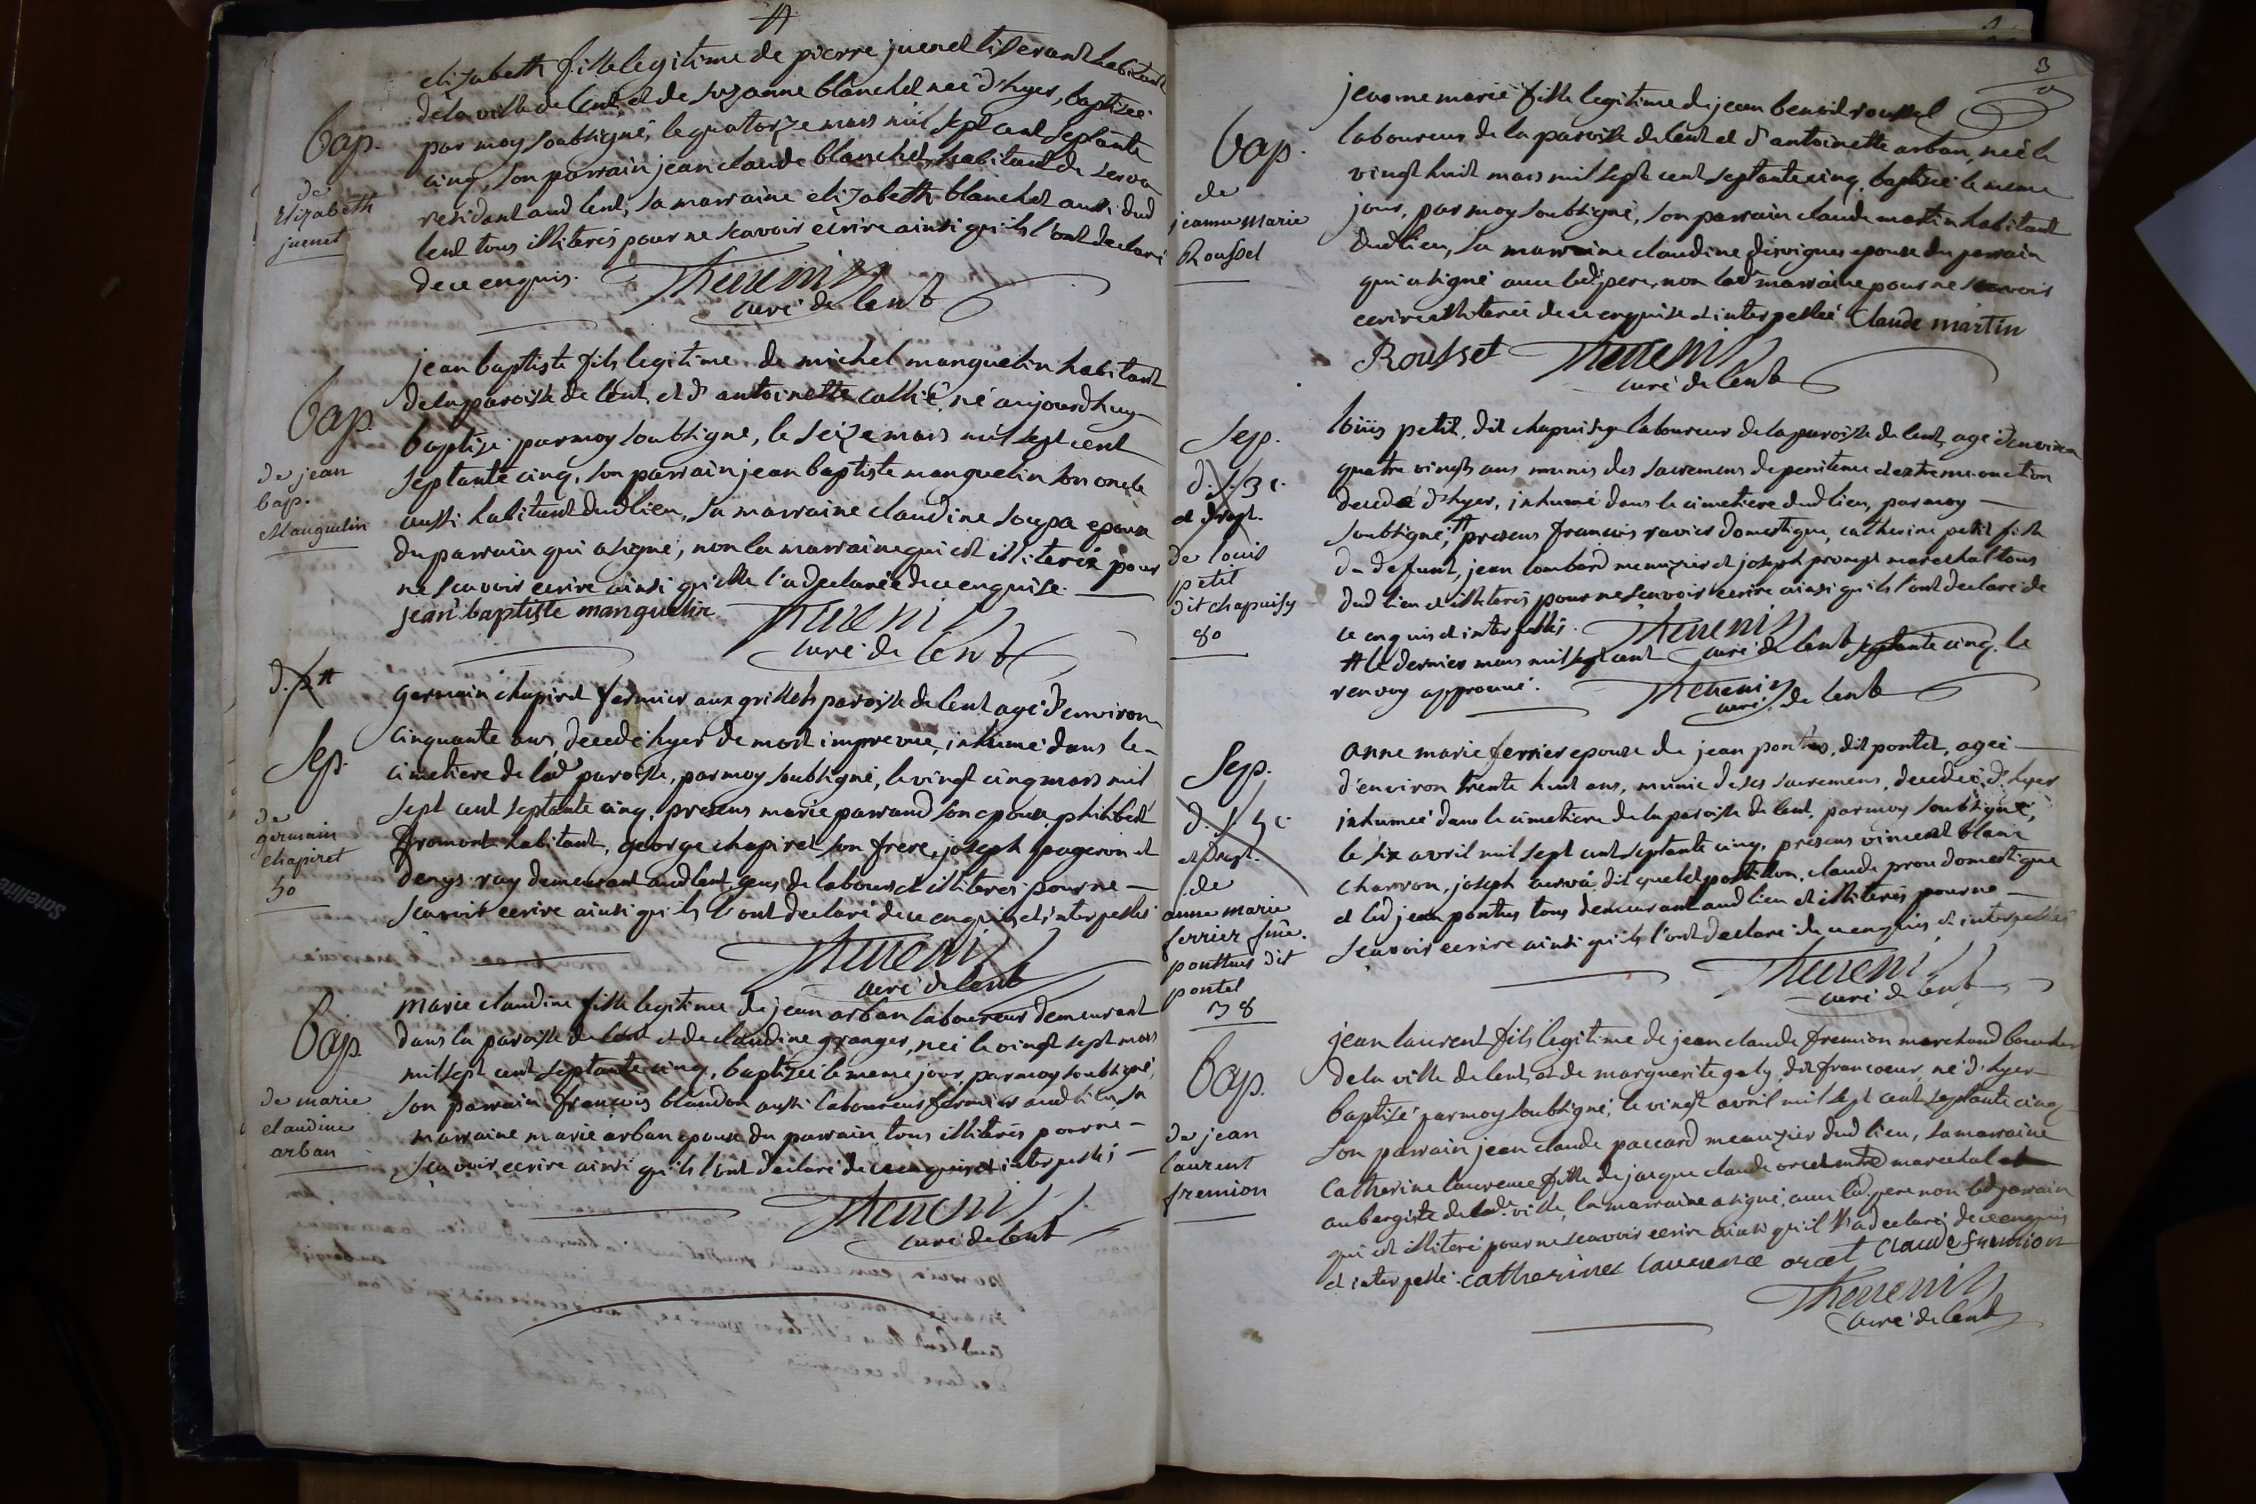 elizabeth fille legitime de pierre juenet tisserand habitant
de la ville de lent, et de suzanne blanchet née d'hyer, baptizée
par moy soubsigné, le quatorze mars mil sept cent septante
cinq, son parrain jean claude blanchet habitant de serva
residant aud lent, sa marraine elizabeth blanchet aussi dud
lent tous illiterés pour ne scavoir ecrire ainsi qu'ils l'ont declaré
de ce enquis.
Thevenin
curé de lent
bap.
de
Elizabeth
juenet
jean baptiste fils legitime de michel manguelin habitant
de la paroisse de lent, et d'antoinette callié, né aujourdhuy
baptisé par moy soubsigné, le seize mars mil sept cent
septante cinq, son parrain jean baptiste manguelin son oncle
aussi habitant dudlieu, sa marraine claudine soupa epouse
du parrain qui a signé, non la marraine qui est illiterée pour
ne scavoir ecrire ainsi qu'elle l'a declarée de ce enquise.
jean baptiste manguelin Thevenin
curé de lent
bap
de jean
bap.
Manguelin
germain chapiret fermier aux grillets paroisse de lent agé d'environ
cinquante ans, decedé hyer de mort imprevue, inhumé dans le
cimetiere de lad. paroisse, par moy soubsigné, le vingt cinq mars mil
sept cent septante cinq, presens marie parrand son epouse, philibert
fromont habitant, george chapiret son frere, joseph pageron et
denys ray demeurant audlent, gens de labours et illiterés pour ne
scavoir ecrire ainsi qu'ils l'ont declaré de ce enquis et interpellés
Thevenin
curé de lent
Sep.
de
germain
chapiret
50
marie claudine fille legitime de jean arban laboureur demeurant
dans la paroisse de lent et de claudine granger, née le vingt sept mars
mil sept cent septante cinq, baptizée le meme jour, par moy soubsigné,
son parrain françois blandon aussi laboureur fermier aud lieu, sa
marraine marie arban epouse du parrain tous illiterés pour ne
scavoir ecrire ainsi qu'ils l'ont declaré de ce enquis et interpellés
Thevenin
curé de lent
bap
de marie
claudine
arban
3
jeanne marie fille legitime de jean benoit roussel
laboureur de la paroisse de lent et d'antoinette arban, née le
vingt huit mars mil sept cent septante cinq, baptisée le meme
jour, par moy soubsigné, son parrain claude martin habitant
dudlieu, sa marraine claudine desvignes epouse du parrain
qui a signé avec led. pere, non lad. marraine pour ne scavoir
ecrire illiterée de ce enquise et interpellée Claude martin
Rousset Thevenin
curé de lent
bap.
de
jeanne marie
Roussel
loüis petit, dit chapuisy laboureur de la paroisse de lent, agé d'environ
quatre vingts ans munis des sacremens de penitence et extreme onction
decedé d'hyer, inhumé dans le cimetiere dud lieu, par moy
soubsigné, # presens francois ravier domestique, catherine petit fille
du defunt, jean lombard menuzier et joseph prompt marechal tous
dud lieu et illiterés pour ne scavoir ecrire ainsi qu'ils l'ont declaré de
ce enquis et interpellés. Thevenin
curé de lent
# le dernier mars mil sept cent septante cinq. le
renvoy approuvé. Thevenin
curé de lent
Sep.
de louis
petit
dit chapuisy
80
anne marie ferrier epouse de jean pontus, dit pontet, agée
d'environ trente huit ans, munie de ses sacremens, decedée d'hyer
inhumée dans le cimetiere de la paroisse de lent, par moy soubsigné,
le six avril mil sept cent septante cinq, presens vincent blanc
charron, joseph curva, dit quelet postillon, claude prou domestique
et led jean pontus tous demeurant aud lieu et illiterés pour ne
scavoir ecrire ainsi qu'ils l'ont declaré de ce enquis et interpellés
Thevenin
curé de lent
Sep.
de
anne marie
ferrier fme.
ponthus dit
pontet
38
jean laurent fils legitime de jean claude fremion marchand boucher
de la ville de lent, et de marguerite galy, dit francoeur, né d'hyer
baptizé par moy soubsigné, le vingt avril mil sept cent septante cinq
son parrain jean claude paccard menuzier dud lieu, sa marraine
catherine laurence fille de jacque claude orcet marechal et
aubergiste de lad. ville, la marraine a signé, avec led. pere non led parrain
qui est illiteré pour ne scavoir ecrire ainsi qu'il l'a declaré de ce enquis
et interpellé. catherine laurence orcet Claude fremion
Thevenin
curé de lent
bap.
de jean
laurent
fremion